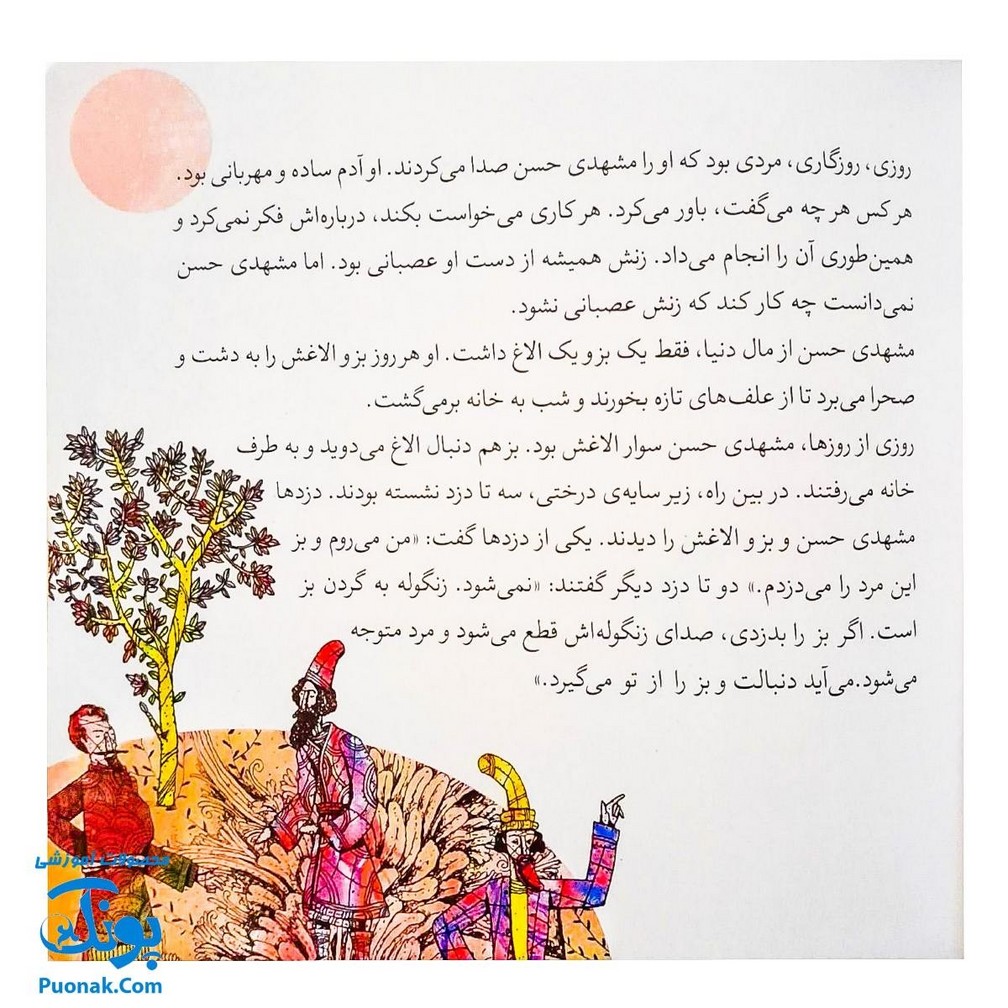 روزی، روزگاری، مردی بود که او را مشهدی حسن صدا می‌کردند. او آدم ساده و مهربانی بود.
هر کس هر چه می‌گفت، باور می‌کرد. هر کاری می‌خواست بکند، درباره‌اش فکر نمی‌کرد و
همین‌طوری آن را انجام می‌داد. زنش همیشه از دست او عصبانی بود. اما مشهدی حسن
نمی‌دانست چه کار کند که زنش عصبانی نشود.
مشهدی حسن از مال دنیا، فقط یک بز و یک الاغ داشت. او هر روز بز و الاغش را به دشت و
صحرا می‌برد تا از علف‌های تازه بخورند و شب به خانه برمی‌گشت.
روزی از روزها، مشهدی حسن سوار الاغش بود. بز هم دنبال الاغ می‌دوید و به طرف
خانه می‌رفتند. در بین راه، زیر سایه‌ی درختی، سه تا دزد نشسته بودند. دزدها
مشهدی حسن و بز و الاغش را دیدند. یکی از دزدها گفت: «من می‌روم و بز
این مرد را می‌دزدم.» دو تا دزد دیگر گفتند: «نمی‌شود. زنگوله به گردن بز
است. اگر بز را بدزدی، صدای زنگوله‌اش قطع می‌شود و مرد متوجه
می‌شود.می‌آید دنبالت و بز را از تو می‌گیرد.»
محصولات آموزشی
پونک
Puonak.Com